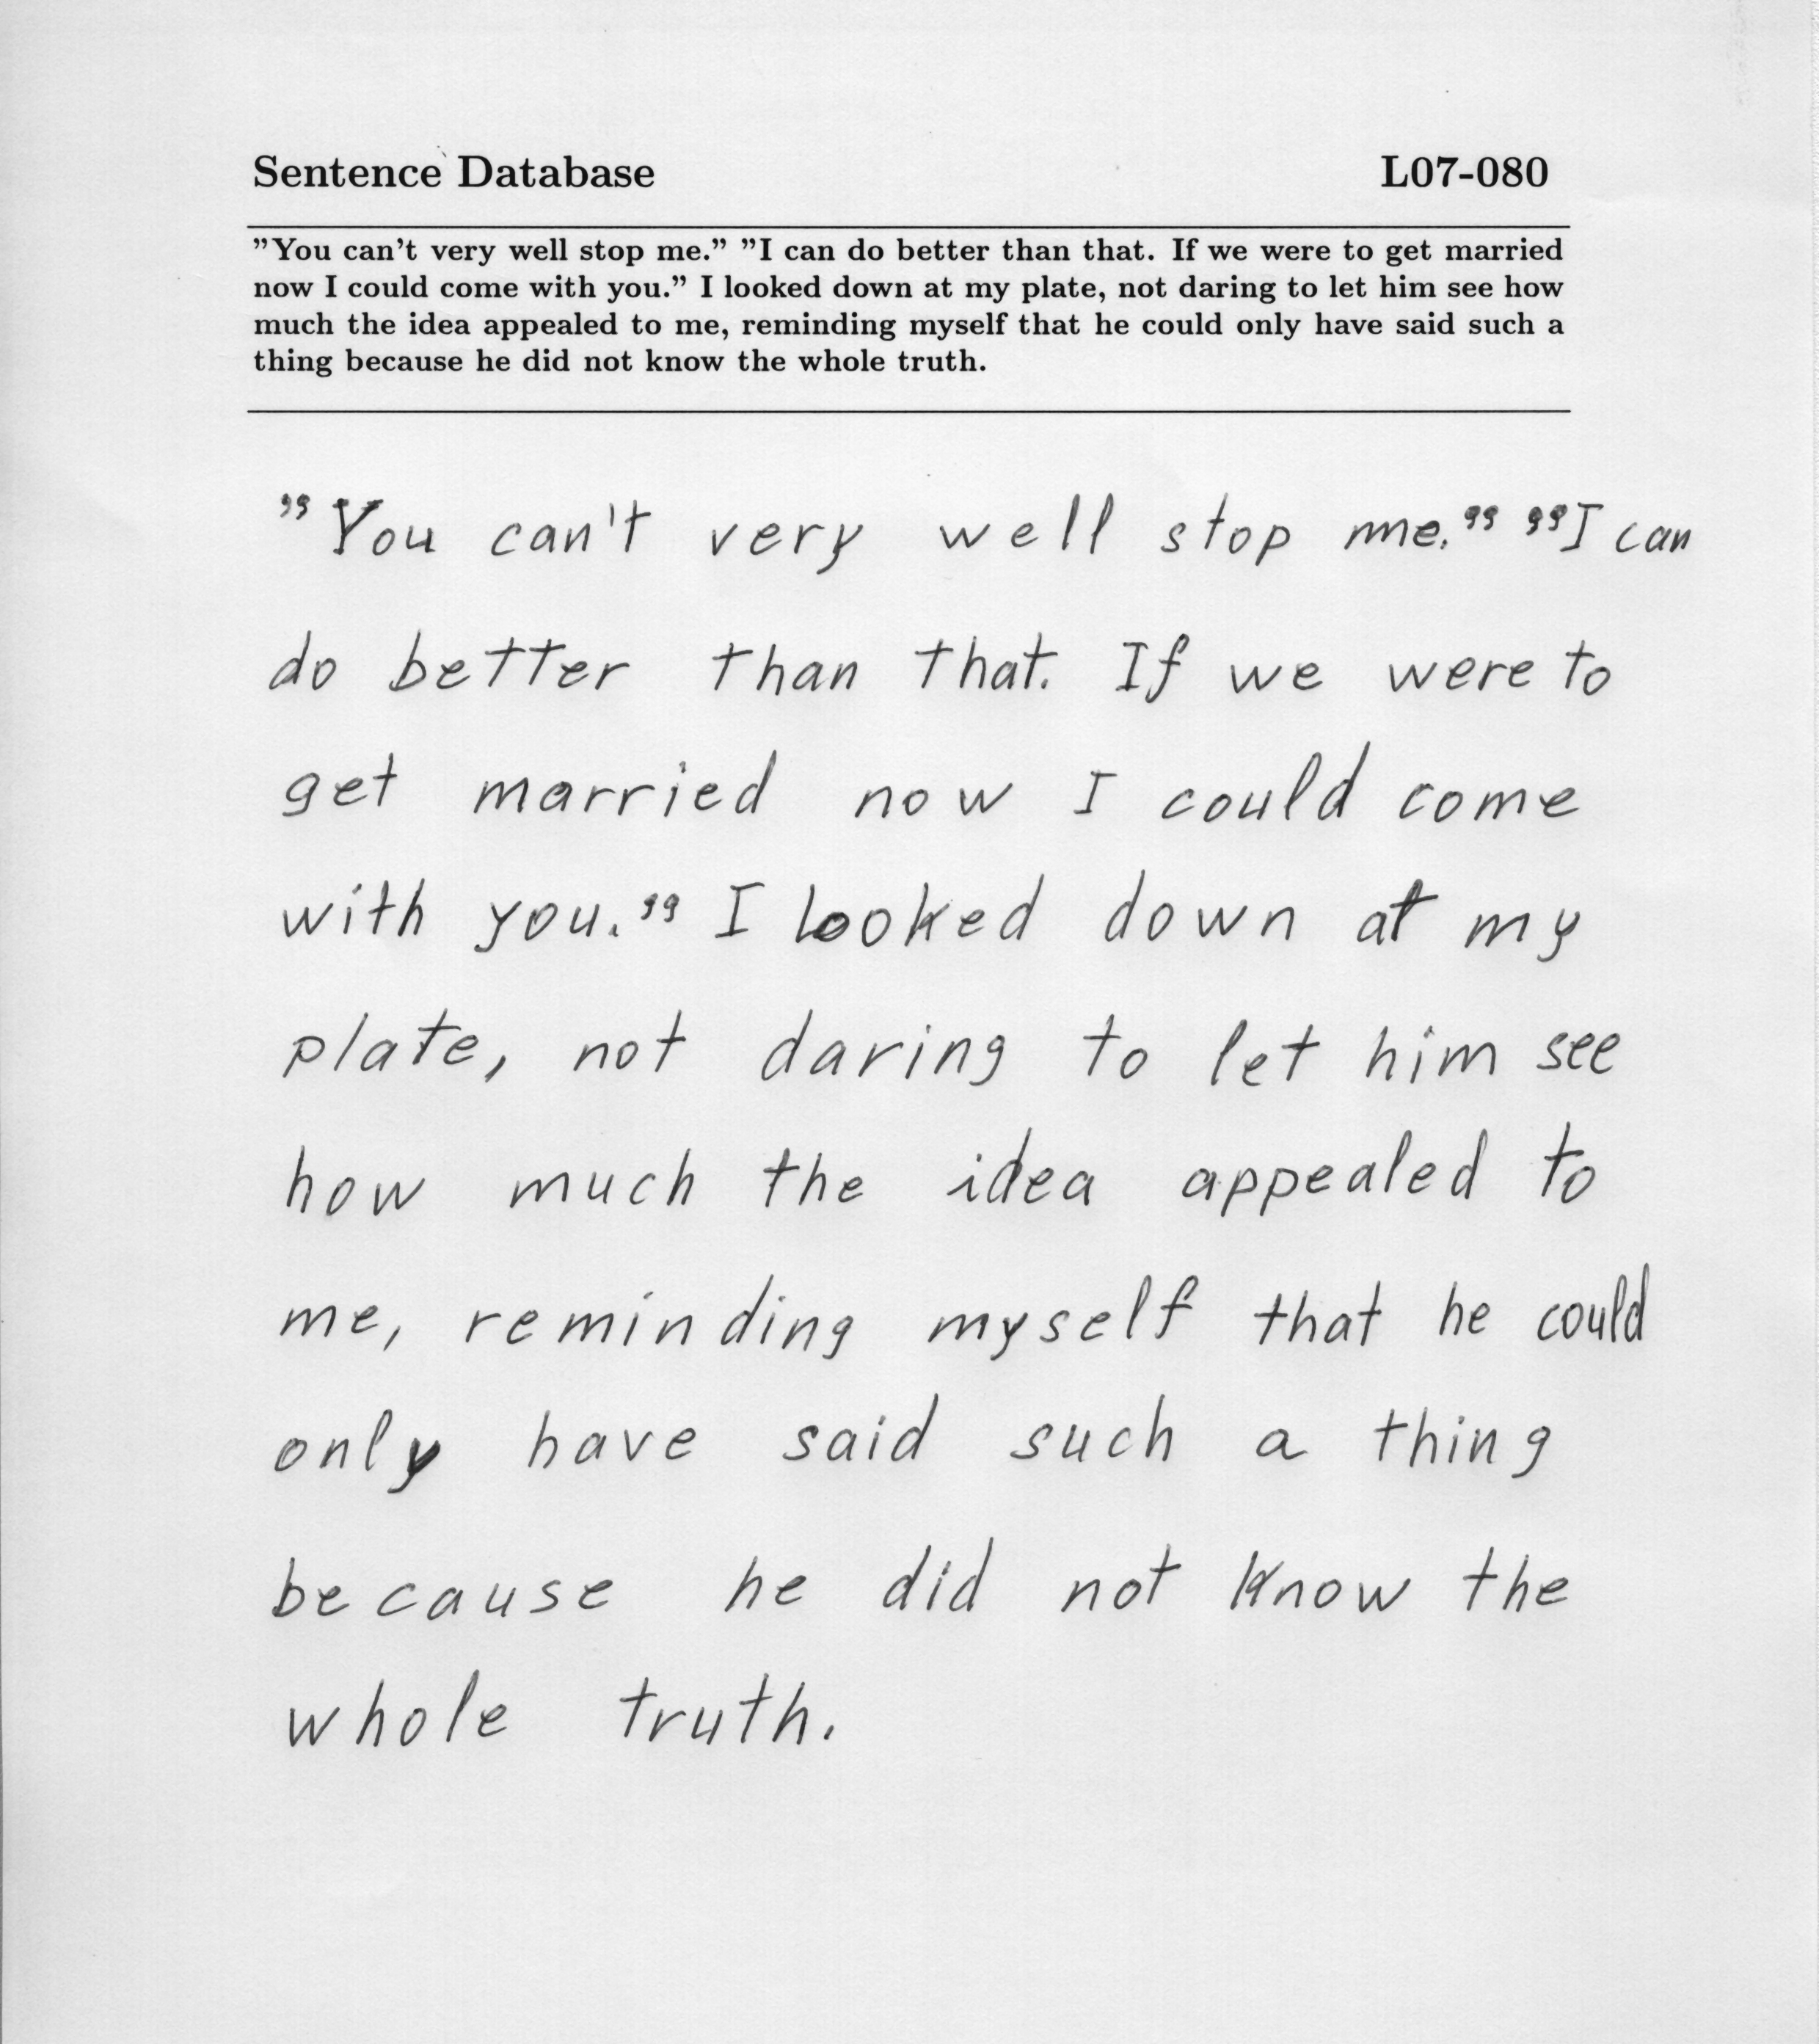 Sentence Database L07-080
”You can’t very well stop me.” ”I can do better than that. If we were to get married
now I could come with you.” I looked down at my plate, not daring to let him see how
much the idea appealed to me, reminding myself that he could only have said such a
thing because he did not know the whole truth.
”You can't very well stop me.” ”I can
do better than that. If we were to
get married now I could come
with you.” I looked down at my
plate, not daring to let him see
how much the idea appealed to
me, reminding myself that he could
only have said such a thing
because he did not know the
whole truth.